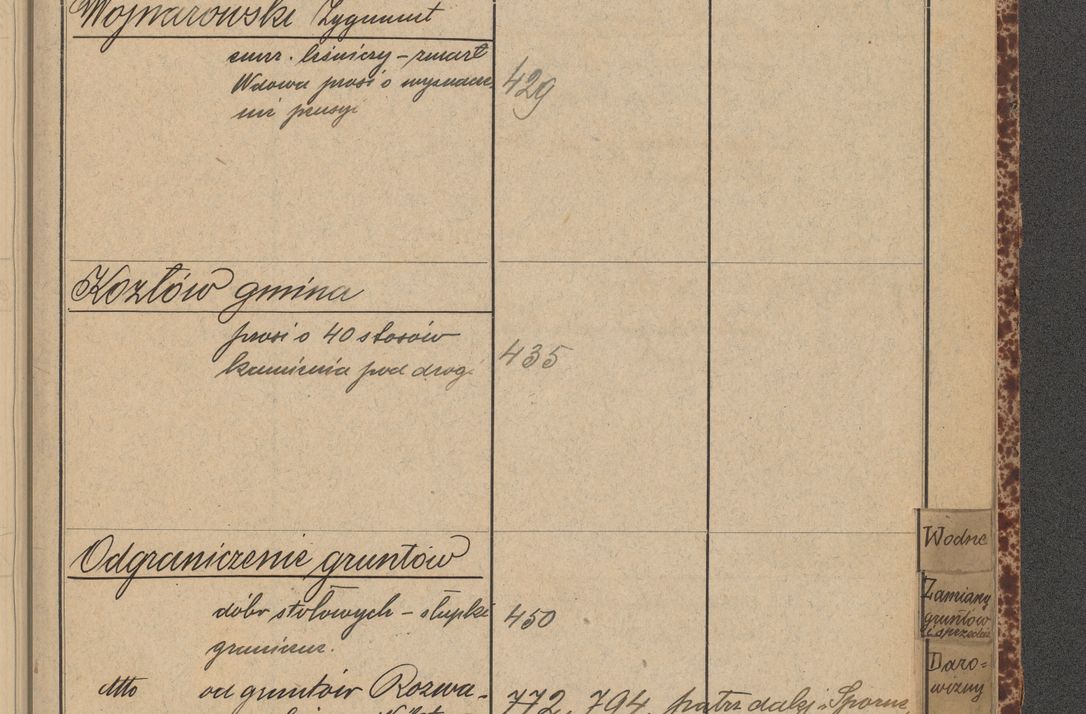 Wojnarowski Zygmunt
emer. leśniczy – zmarł
Wdowa prosi o wyznacze-
nie pensyi
429
Kozłów gmina
prosi o 40 stosów
kamienia pod drogę
435
Odgraniczenie gruntów
dóbr stołowych – słupki
graniczne.
450
dtto od gruntów Rozwa-
772, 794, patrz dalej: Sporne
Wodne
Zamiany
gruntów
i sprzedaż
Daro=
wizny